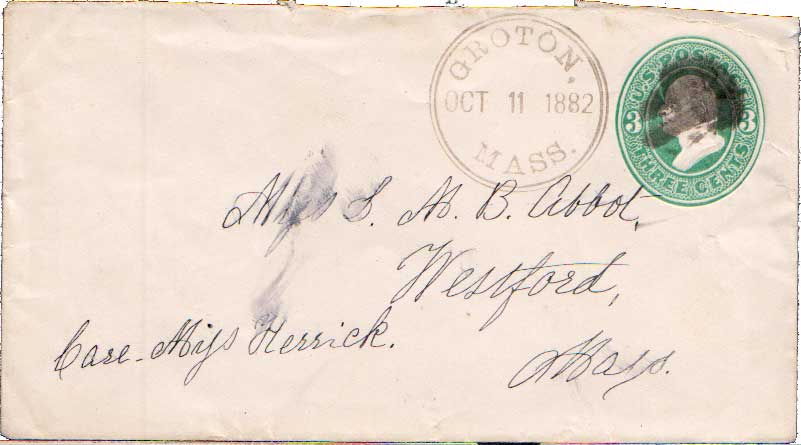 GROTON,
OCT 11 1882
MASS.
U.S. POSTAGE
3 3
THREE CENTS
Miss S. M. B. Abbot,
Westford,
Care Miss Herrick.
Mass.